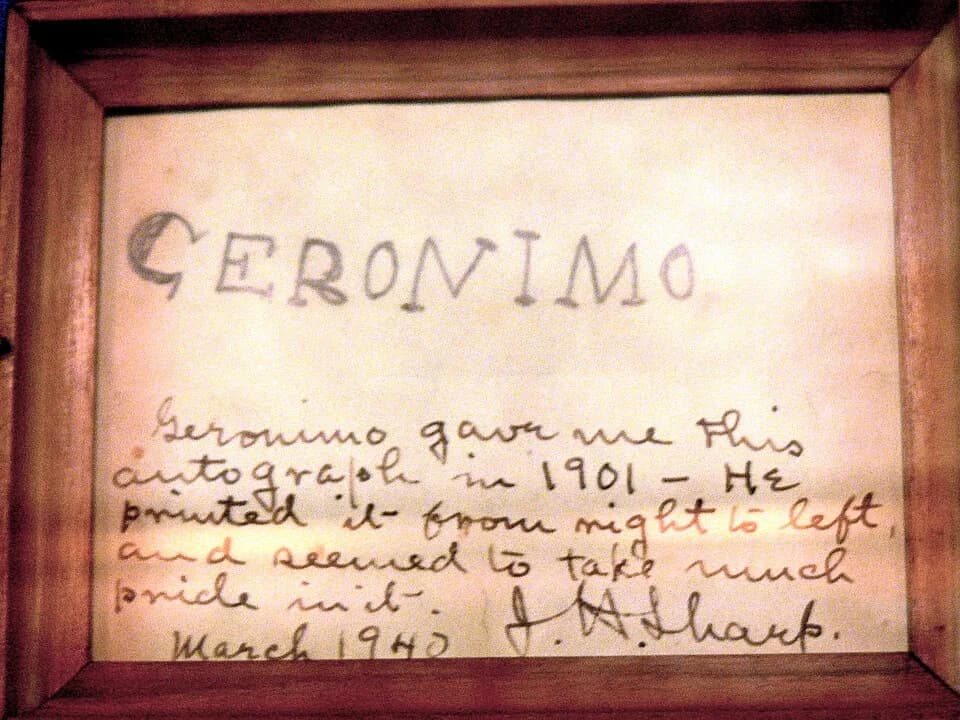 GERONIMO
Geronimo gave me this
autograph in 1901 – He
printed it from right to left,
and seemed to take much
pride in it.
J. H. Sharp.
March 1940